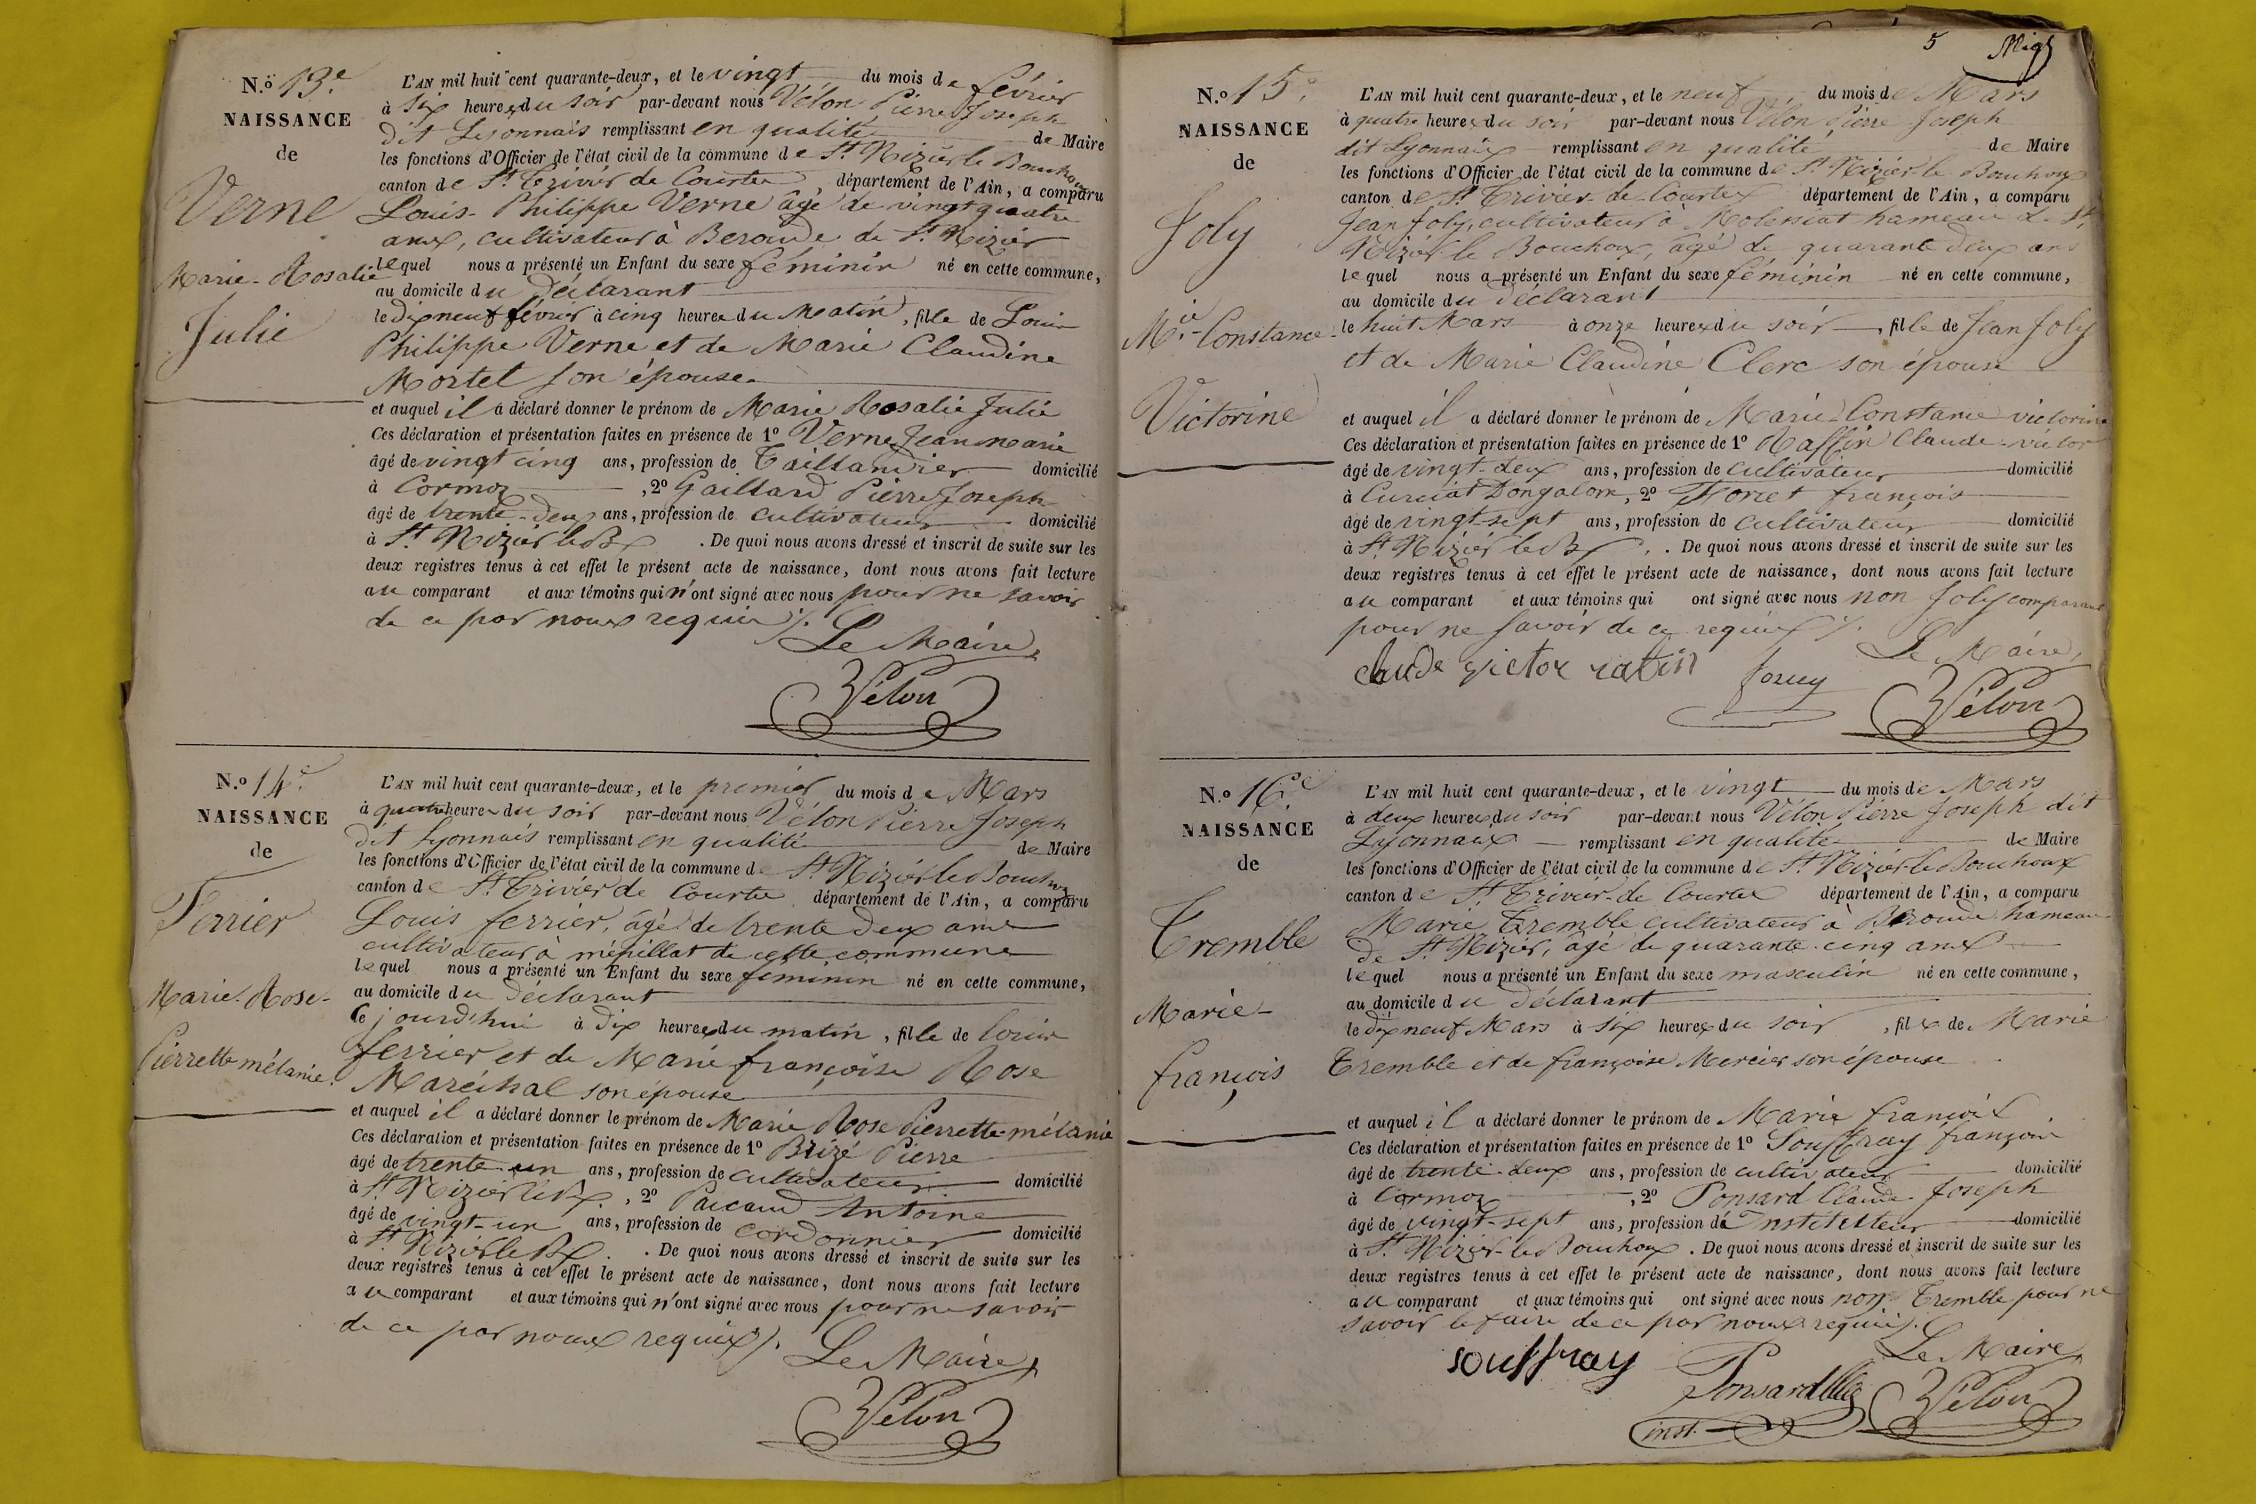 N.o 13.e
NAISSANCE
de
Verne
Marie-Rosalie
Julie
L'AN mil huit cent quarante-deux, et le vingt du mois de février
à six heures du soir par-devant nous Vélon Pierre Joseph
dit Lyonnais remplissant en qualité de Maire
les fonctions d'Officier de l'état civil de la commune de St Nizier le Bouchoux
canton de St Trivier de Courtes, département de l'Ain, a comparu
Louis-Philippe Verne âgé de vingt quatre
ans, cultivateur à Beroude de St Nizier
lequel nous a présenté un Enfant du sexe féminin né en cette commune,
au domicile du déclarant
le dix neuf février à cinq heures du Matin, fille de Louis
Philippe Verne et de Marie Claudine
Mortel son épouse
et auquel il a déclaré donner le prénom de Marie Rosalie Julie
Ces déclaration et présentation faites en présence de 1o Verne Jean marie
âgé de vingt cinq ans, profession de Taillandier domicilié
à Cormoz, 2o Gaillard Pierre Joseph
âgé de trente-deux ans, profession de cultivateur domicilié
à St Nizier le Bx. De quoi nous avons dressé et inscrit de suite sur les
deux registres tenus à cet effet le présent acte de naissance, dont nous avons fait lecture
au comparant et aux témoins qui n'ont signé avec nous pour ne savoir
de ce par nous requis ./.
Le Maire,
Vélon
N.o 14.e
NAISSANCE
de
Ferrier
Marie-Rose-
Pierrette mélanie.
L'AN mil huit cent quarante-deux, et le premier du mois de Mars
à quatre heures du soir par-devant nous Vélon Pierre Joseph
dit Lyonnais remplissant en qualité de Maire
les fonctions d'Officier de l'état civil de la commune de St Nizier le Bouchoux
canton de St Trivier de Courtes, département de l'Ain, a comparu
Louis ferrier, âgé de trente deux ans
cultivateur à mépillat de cette commune
lequel nous a présenté un Enfant du sexe féminin né en cette commune,
au domicile du déclarant
ce jourd'hui à dix heures du matin, fille de louis
ferrier et de Marie françoise Rose
Maréchal son épouse
et auquel il a déclaré donner le prénom de Marie Rose Pierrette mélanie
Ces déclaration et présentation faites en présence de 1o Brizé Pierre
âgé de trente-un ans, profession de cultivateur domicilié
à St Nizier le Bx, 2o Antoine
âgé de vingt-un ans, profession de cordonnier domicilié
à St Nizier le Bx. De quoi nous avons dressé et inscrit de suite sur les
deux registres tenus à cet effet le présent acte de naissance, dont nous avons fait lecture
au comparant et aux témoins qui n'ont signé avec nous pour ne savoir
de ce par nous requis ./.
Le Maire,
Vélon
5
N.o 15.e
NAISSANCE
de
Joly
Mie-Constance-
Victorine
L'AN mil huit cent quarante-deux, et le neuf du mois de Mars
à quatre heures du soir par-devant nous Vélon Pierre Joseph
dit Lyonnais remplissant en qualité de Maire
les fonctions d'Officier de l'état civil de la commune de St Nizier-le Bouchoux
canton de St Trivier-de-Courtes département de l'Ain, a comparu
Jean Joly, cultivateur à hameau de St
Nizier le Bouchoux, âgé de quarante deux ans
lequel nous a présenté un Enfant du sexe féminin né en cette commune,
au domicile du déclarant
le huit Mars à onze heures du soir, fille de Jean Joly
et de Marie Claudine Clerc son épouse
et auquel il a déclaré donner le prénom de Marie-Constance victorine
Ces déclaration et présentation faites en présence de 1o Raffin Claude-victor
âgé de vingt-deux ans, profession de cultivateur domicilié
à Curciat Dongalon, 2o françois
âgé de vingt-sept ans, profession de cultivateur domicilié
à St Nizier le Bx. De quoi nous avons dressé et inscrit de suite sur les
deux registres tenus à cet effet le présent acte de naissance, dont nous avons fait lecture
au comparant et aux témoins qui ont signé avec nous non Joly comparant
pour ne savoir de ce requis ./.
Le Maire,
claude victor rafin
Vélon
N.o 16.e
NAISSANCE
de
Tremble
Marie-
françois
L'AN mil huit cent quarante-deux, et le vingt du mois de Mars
à deux heures du soir par-devant nous Vélon Pierre Joseph dit
Lyonnais remplissant en qualité de Maire
les fonctions d'Officier de l'état civil de la commune de St Nizier-le Bouchoux
canton de St Trivier-de Courtes département de l'Ain, a comparu
Marie Tremble cultivateur à Beroude hameau
de St Nizier, âgé de quarante-cinq ans
lequel nous a présenté un Enfant du sexe masculin né en cette commune,
au domicile du déclarant
le dix neuf Mars à six heures du soir, fils de Marie
Tremble et de françoise Mercier son épouse
et auquel il a déclaré donner le prénom de Marie françois
Ces déclaration et présentation faites en présence de 1o Souffray françois
âgé de trente-deux ans, profession de cultivateur domicilié
à Cormoz, 2o Ponsard Claude-Joseph
âgé de vingt-sept ans, profession de Instituteur domicilié
à St Nizier-le Bouchoux. De quoi nous avons dressé et inscrit de suite sur les
deux registres tenus à cet effet le présent acte de naissance, dont nous avons fait lecture
au comparant et aux témoins qui ont signé avec nous non Tremble pour ne
savoir le faire de ce par nous requis ./.
Le Maire,
souffray
Ponsard
inst.
Vélon